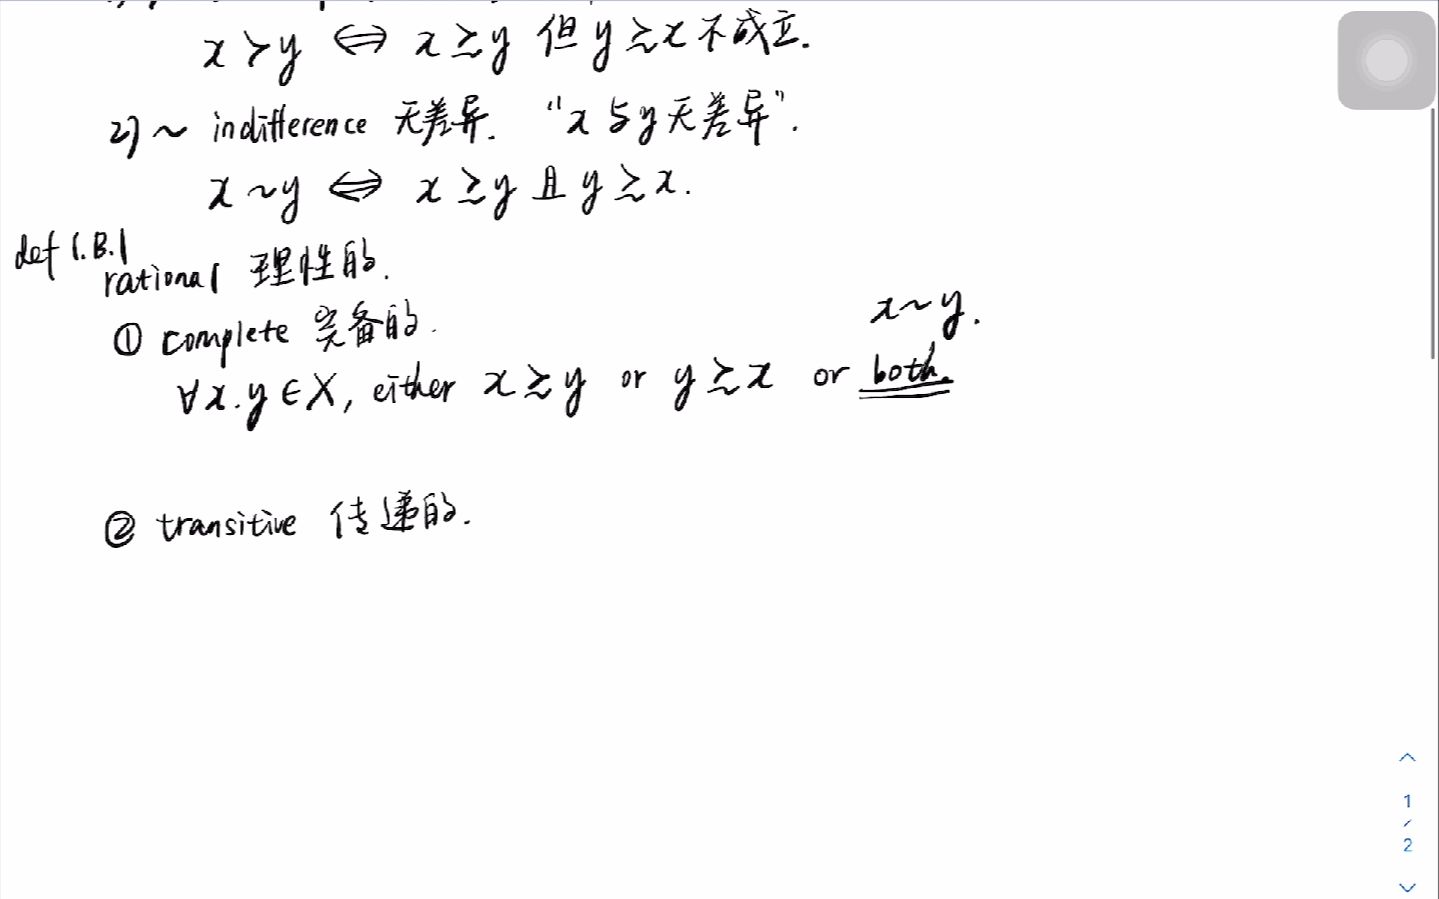 x ≻ y ⟺ x ≿ y 但 y ≿ x 不成立.
2) ~ indifference 无差异. “x 与 y 无差异”.
x ~ y ⟺ x ≿ y 且 y ≿ x.
def 1.B.1
rational 理性的.
① complete 完备的.
x ~ y.
∀ x.y ∈ X, either x ≿ y or y ≿ x or both.
② transitive 传递的.
1
/
2